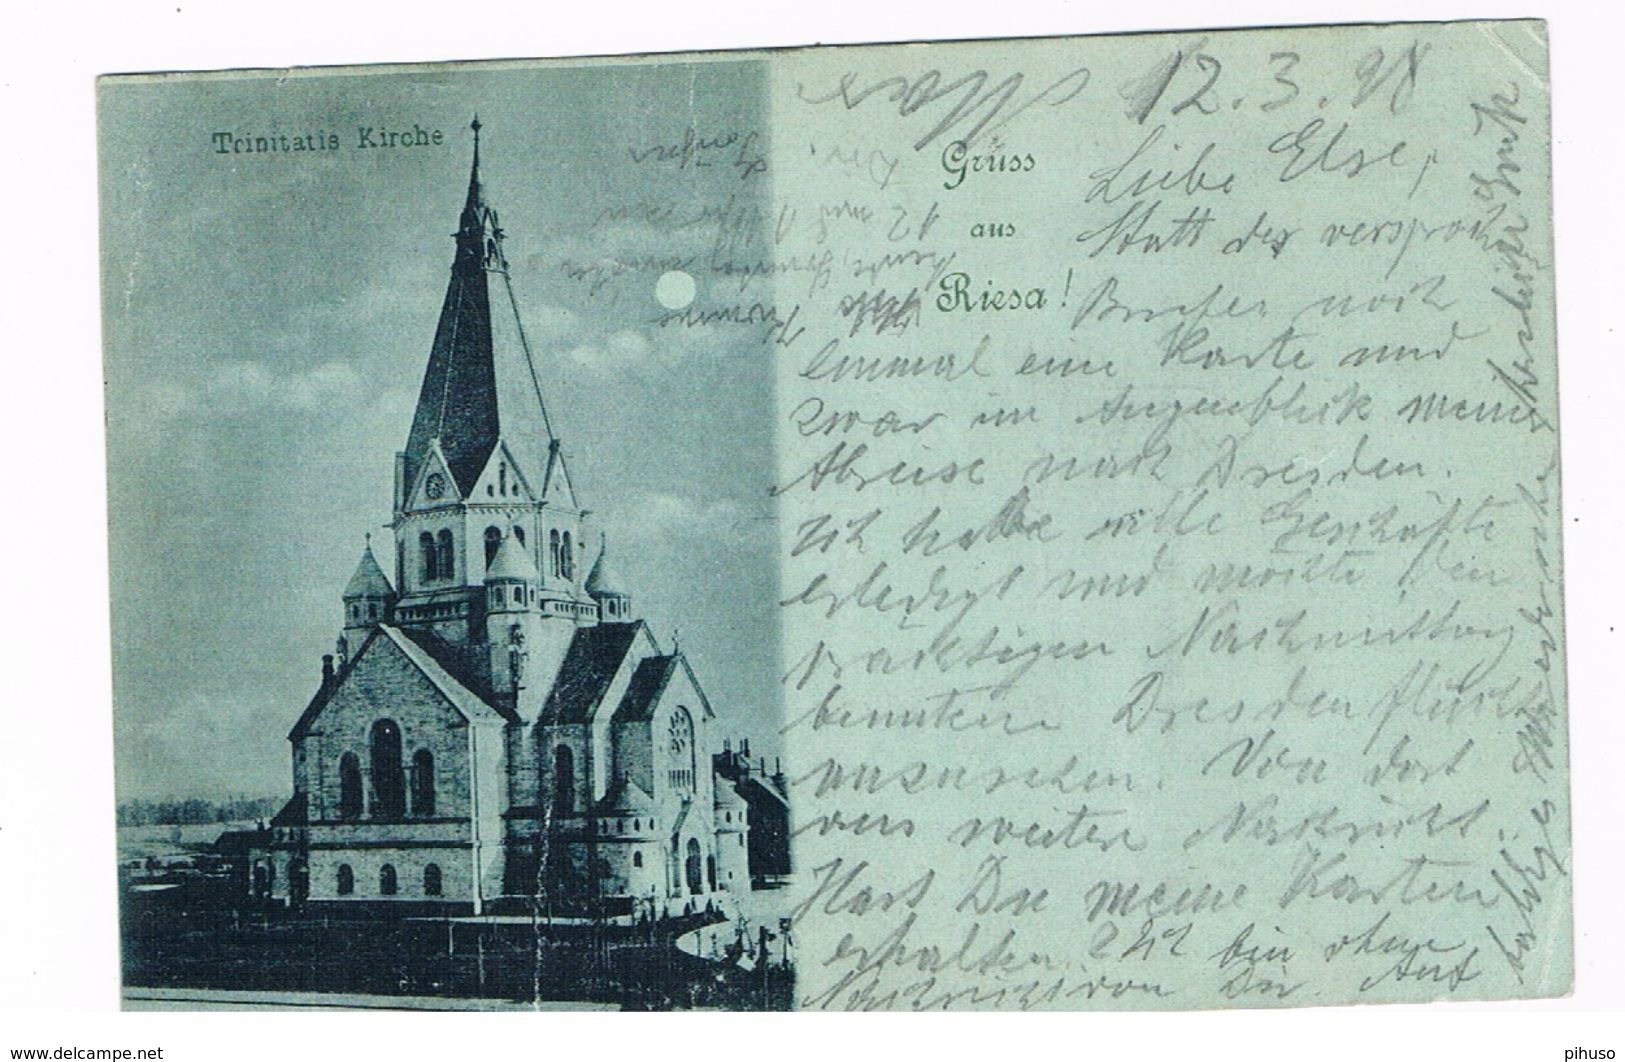 Trinitatis Kirche
12.3.98
Gruss
aus
Riesa!
Liebe Else,
Statt des versproch
Briefes noch
einmal eine Karte und
zwar im Augenblick meiner
Abreise nach Dresden.
Ich habe alle Geschäfte
erledigt und möchte den
prächtigen Nachmittag
benutzen Dresden flücht
anzusehen. Von dort
aus weitere Nachricht.
Hast Du meine Karten
erhalten? Ich bin ohne
Nachricht von Dir. Auf
baldiges Wiedersehen
herzlicher Gruß
www.delcampe.net
pihuso